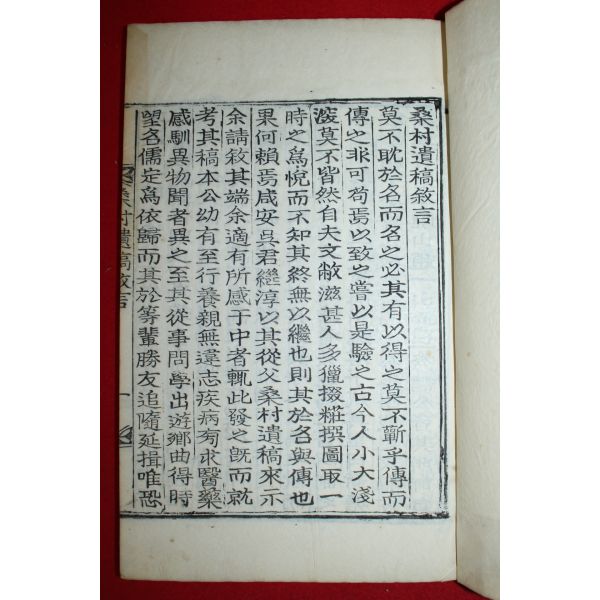 桑村遺稿敘言
莫不耽於名而名之必其有以得之莫不蘄乎傳而
傳之非可苟焉以致之嘗以是驗之古今人小大淺
深莫不皆然自夫文敝滋甚人多獵掇粧撰圖取一
時之爲悅而不知其終無以繼也則其於名與傳也
果何賴焉咸安吳君繼淳以其從父桑村遺稿來示
余請敘其端余適有所感于中者輒此發之旣而就
考其稿本公幼有至行養親無違志疾病旁求醫藥
感馴異物聞者異之至其從事問學出遊鄕曲得時
望名儒定爲依歸而其於等輩勝友追隨延揖唯恐
桑村遺稿敘言 一